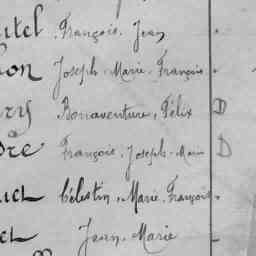 utel François. Jean
on Joseph-Marie-François
ry Bonaventure, Félix D
re François. Joseph-Marie D
uel Célestin, Marie, François
el Jean-Marie